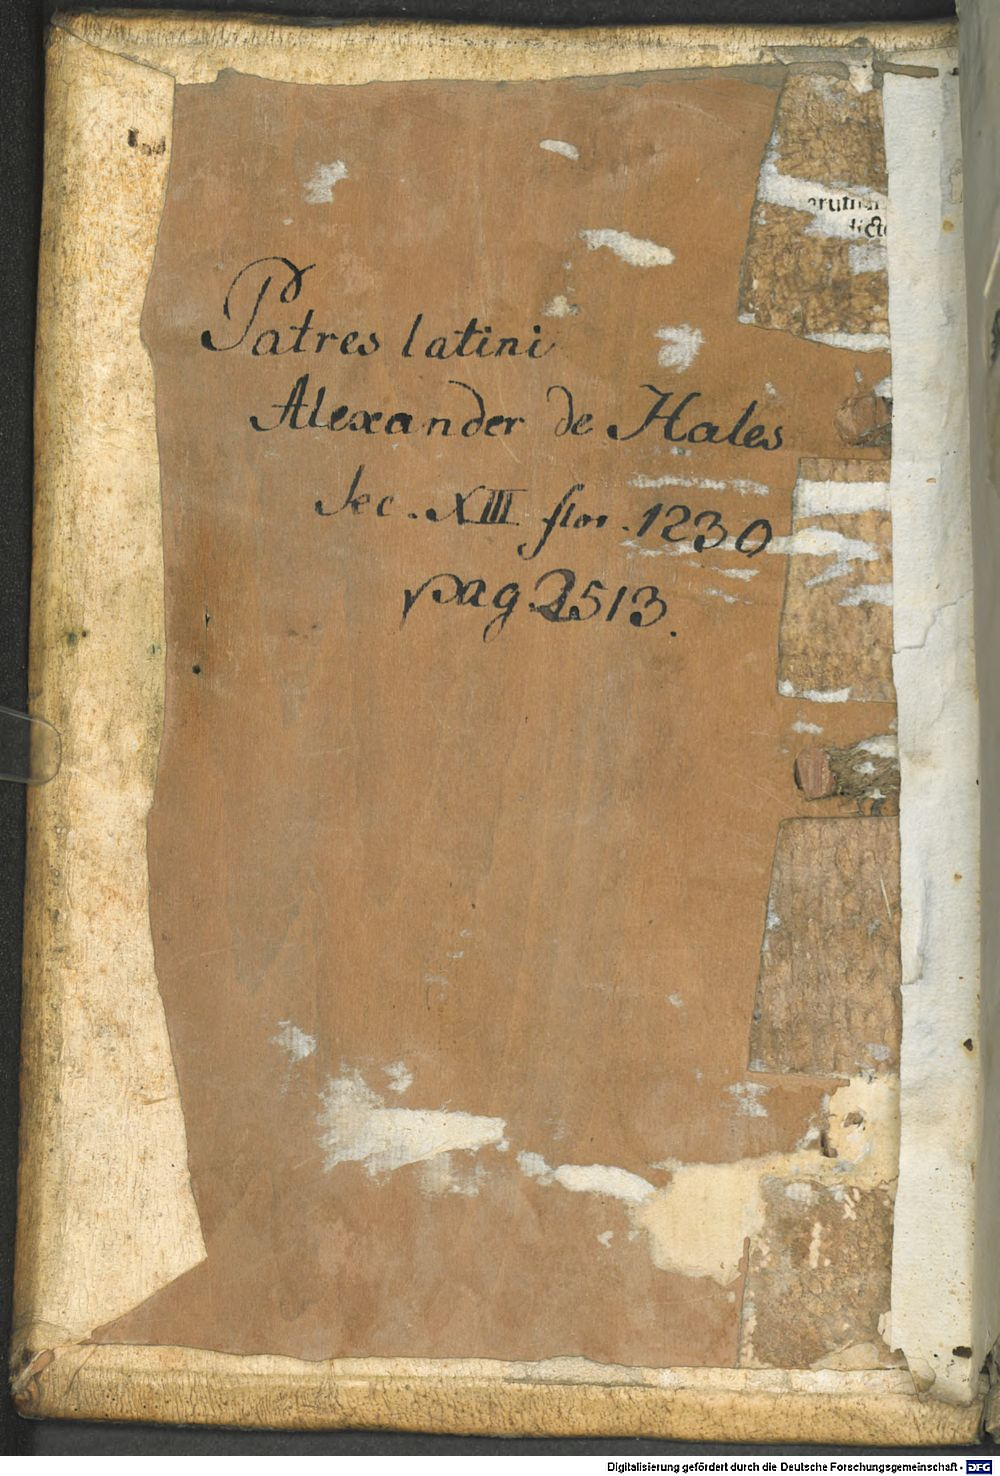 Patres latini
Alexander de Hales
Sec. XIII flor. 1230
pag 2513.
Digitalisierung gefördert durch die Deutsche Forschungsgemeinschaft - DFG